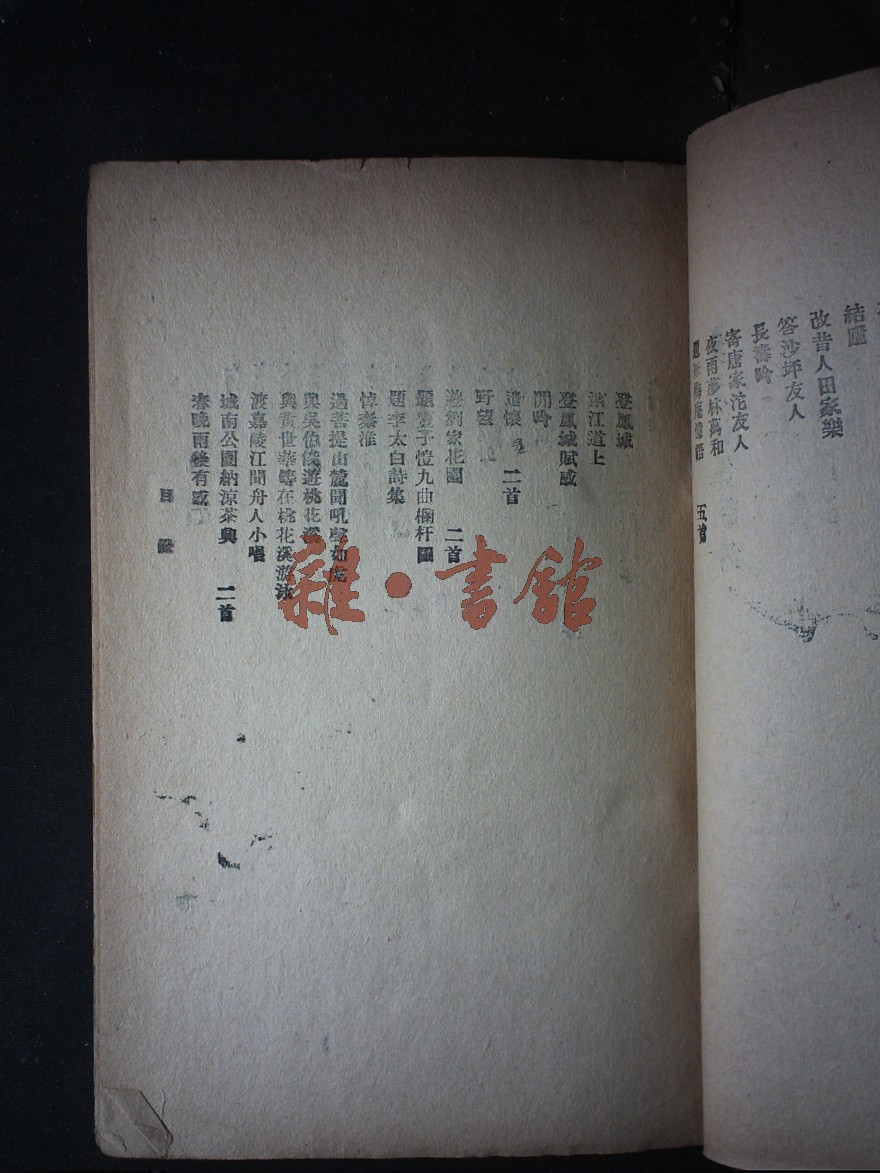 結廬
改昔人田家樂
答沙坪友人
長壽吟
寄唐家沱友人
夜雨夢林萬和
五首
登鳳城
濱江道上
登鳳城賦感
閒吟
遣懷 二首
野望
遊劉家花園 二首
題豐子愷九曲欄杆圖
題李太白詩集
悼秦淮
過菩提山麓聞吼聲如虎
與吳伯俊遊桃花溪
與黃世華等在桃花溪游泳
渡嘉陵江聞舟人小唱
城南公園納涼茶興 二首
春晚雨後有感
目錄
雜·書館